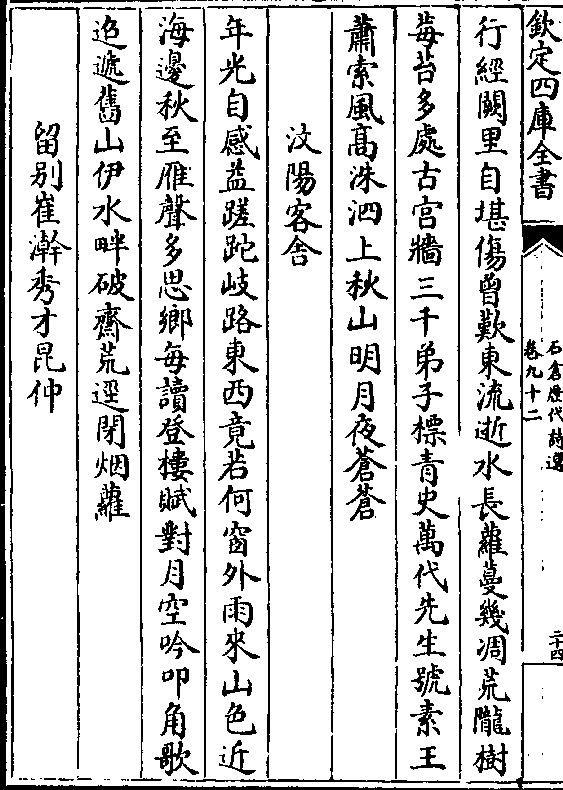 欽定四庫全書
石倉歷代詩選
卷九十二
二十四
行經闕里自堪傷曾歎東流逝水長蘿蔓幾凋荒隴樹
莓苔多處古宫牆三千弟子標青史萬代先生號素王
蕭索風髙洙泗上秋山明月夜蒼蒼
汶陽客舍
年光自感益蹉跎岐路東西竟若何窗外雨來山色近
海邊秋至雁聲多思鄉每讀登樓賦對月空吟叩角歌
迢遞舊山伊水畔破齋荒逕閉烟蘿
留别崔澣秀才昆仲